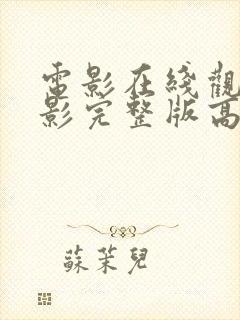 電影在綫觀
影完整版高
蘇茉兒